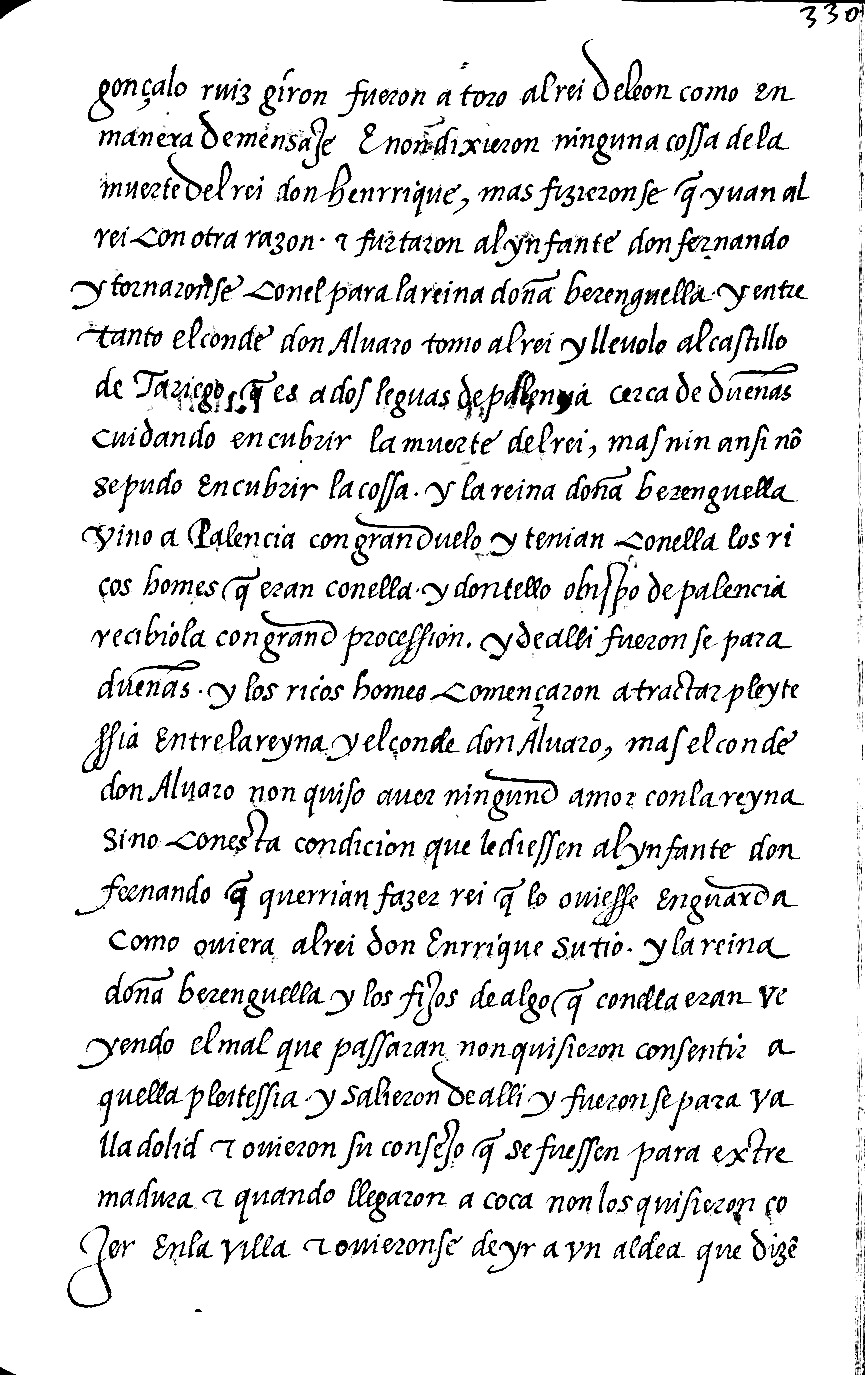 330
gonçalo ruiz giron fueron a toro al rei de leon como en
manera de mensaje E non dixieron ninguna cossa de la
muerte del rei don henrrique, mas fizieronse q̃ yuan al
rei con otra razon · ⁊ furtaron al ynfante don fernando
y tornaronse conel para la reina doña berenguella · y entre
tanto el conde don Aluaro tomo al rei y lleuolo al castillo
de Tariego q̃ es a dos leguas de palençia cerca de dueñas
cuidando encubrir la muerte del rei, mas nin ansi nõ
se pudo encubrir la cossa · y la reina doña berenguella
vino a Palencia con grand duelo y tenian conella los ri
cos homes q̃ eran conella · y don tello obispo de palencia
recibiola con grand procession. y de alli fueronse para
dueñas · y los ricos homes començaron a tractar pleyte
ssia entre la reyna y el conde don Aluaro, mas el conde
don Aluaro non quiso auer ningund amor con la reyna
sino con esta condicion que le diessen al ynfante don
fernando q̃ querrian fazer rei q̃ lo ouiesse en guarda
como ouiera al rei don Enrrique su tio · y la reina
doña berenguella y los fijos de algo q̃ conella eran ve
yendo el mal que passaran non quisieron consentir a
quella pleitessia · y salieron de alli y fueronse para va
lladolid ⁊ ouieron su consejo q̃ se fuessen para extre
madura ⁊ quando llegaron a coca non los quisieron co
jer en la villa ⁊ ouieronse de yr a vn aldea que dizẽ